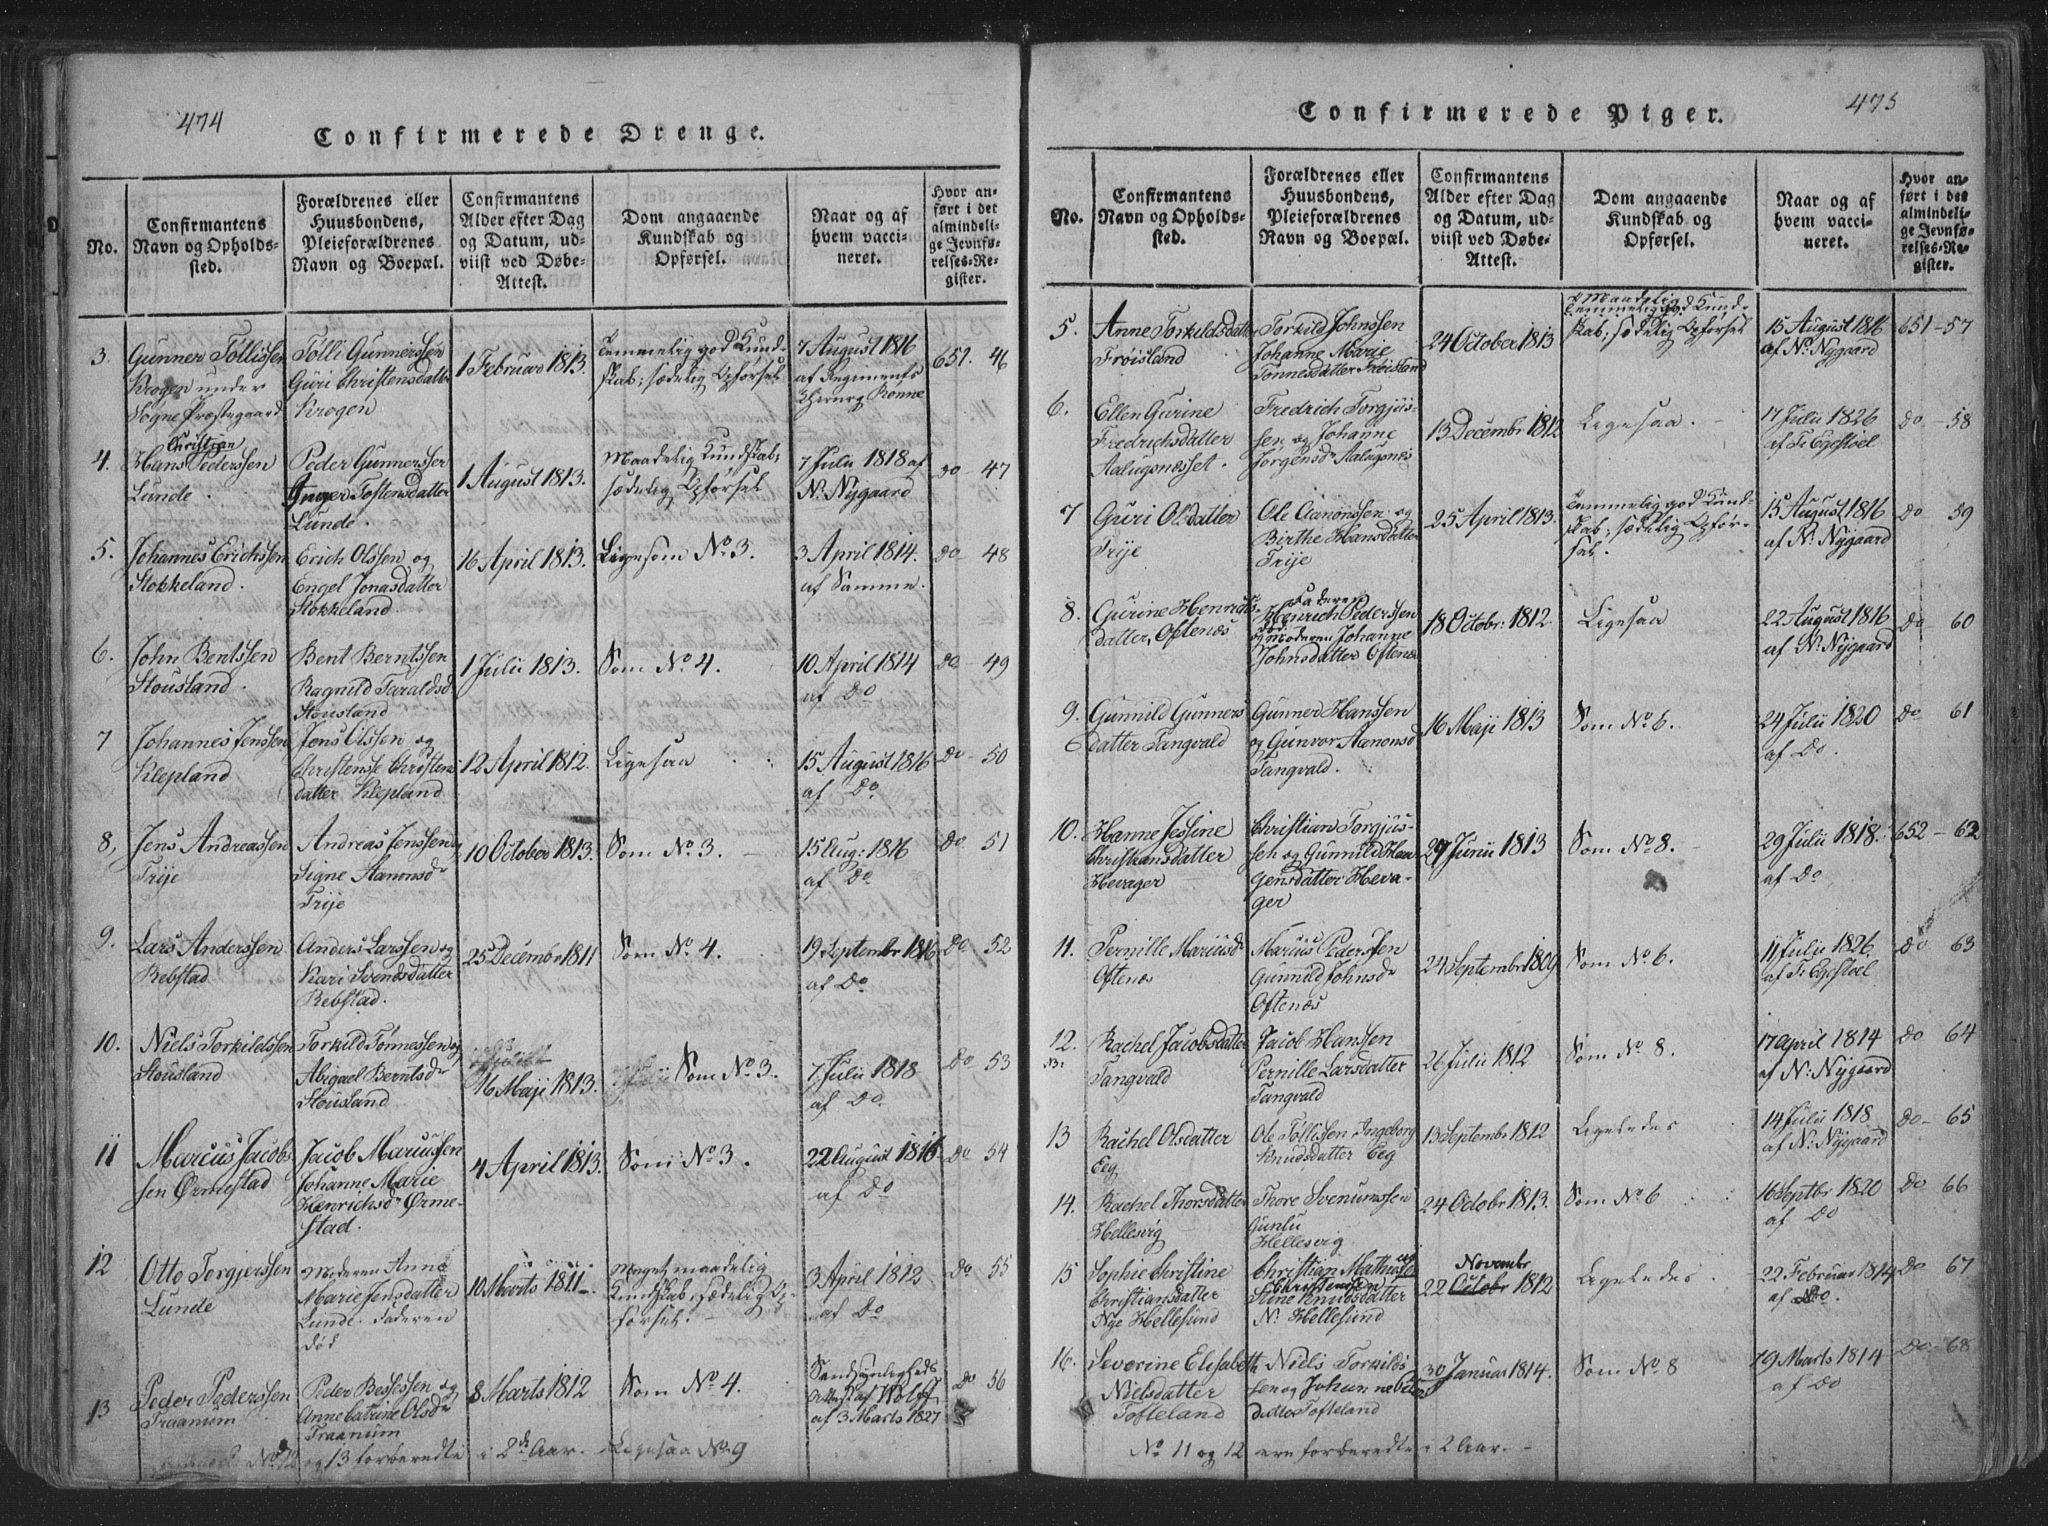 474
Confirmerede Drenge.
No.
Confirmantens
Navn og Opholds-
sted.
Forældrenes eller
Huusbondens,
Pleieforældrenes
Navn og Boepæl.
Confirmantens
Alder efter Dag
og Datum, ud-
viist ved Døbe-
Attest.
Dom angaaende
Kundskab og
Opførsel.
Naar og af
hvem vacci-
neret.
Hvor an-
ført i det
almindeli-
ge Jevnfø-
relses-Re-
gister.
3.
Gunner Tollissen
Krogen under
Sogne Præstegaard
Tolli Gunnerssen
Guri Christensdatter
Krogen
1 Februar 1813.
Temmelig god Kund-
skab; sædelig Opførsel
7 August 1816
af Regiments
Chirurg Rønne
651. 46
4.
Christian
Hans Pederssen
Lunde.
Peder Gunnerssen
Inger Toftensdatter
Lunde.
1 August 1813.
Maadelig Kundskab;
sædelig Opførsel
7 Julii 1818 af
N. Nygaard
do 47
5.
Johannes Erichssen
Stokkeland.
Erich Olssen og
Engel Jonasdatter
Stokkeland.
16 April 1813.
Ligesom No 3.
3 April 1814.
af Samme.
do - 48
6.
John Bentssen
Stousland.
Bent Berntssen
Ragnild Taraldsd
Stousland
1 Julii 1813.
Som No 4.
10 April 1814
af do
do - 49
7
Johannes Jenssen
Klepland
Jens Olssen og
Christense Christens
datter Klepland
12 April 1812.
Ligesaa
15 August 1816
af do
do - 50
8,
Jens Andreassen
Trije
Andreas Jenssen
Signe Aanonsdr
Trije
10 October 1813.
Som No 3.
15 Aug: 1816
af do
do 51
9.
Lars Anderssen
Rebstad
Anders Larssen og
Kari Svendsdatter
Rebstad.
25 Decembr 1811
Som No 4.
19 Septembr 1816
af do
do 52
10.
Niels Torkildssen
Stousland
Torkild Tønnessen og
Abigael Berntsdr
Stousland
16 Maji 1813.
Som No 3.
7 Julii 1818
af do
do 53
11
Marcus Jacobs-
sen Ørmestad
Jacob Mariussen
Johanne Marie
Henrichsdr Ørme-
stad.
4 April 1813.
Som No 3.
22 August 1816
af do
do 54
12
Otto Torgjerssen
Lunde
Moderen Anne
Marie Jensdatter
Lunde. Faderen
død
10 Marts 1811.
Meget maadelig
Kundskab. sædelig Op-
førsel.
3 April 1812
af do
do 55
13
Peder Pederssen
Traanum
Peder Bessessen og
Anne Catrine Olsdr
Traanum
8 Marts 1812
Som No 4.
Sandsynligheds
Attest af Wolff
af 3 Marts 1827
do 56
No 12 og 13 forberedte i 2de Aar. Ligesaa No 9
475
Confirmerede Piger.
No.
Confirmantens
Navn og Opholds-
sted.
Forældrenes eller
Huusbondens,
Pleieforældrenes
Navn og Boepæl.
Confirmantens
Alder efter Dag
og Datum, ud-
viist ved Døbe-
Attest.
Dom angaaende
Kundskab og
Opførsel.
Naar og af
hvem vacci-
neret.
Hvor an-
ført i det
almindeli-
ge Jevnfø-
relses-Re-
gister.
5.
Anne Torkildsdatter
Frøisland
Torkild Johnssen
Johanne Marie
Tønnesdatter Frøisland
24 October 1813
Maadelig
Temmelig god Kund-
skab; sædelig Opførsel
15 August 1816
af N. Nygaard
651 - 57
6.
Ellen Gurine
Fredrichsdatter
Aalugsnæsset.
Fredrich Torgjus-
sen og Johanne
Jørgensdr Aalugsnæs
13 Decembr 1812
Ligesaa.
17 Julii 1826
af Fr Egestoel
do - 58
7
Guri Olsdatter
Trije
Ole Aanonssen og
Birthe Hansdatter
Trije
25 April 1813.
Temmelig god Kund-
skab; sædelig Opfør-
sel.
15 August 1816
af N. Nygaard
do 59
8.
Gurine Henrichs-
datter, Oftenæs
Faderen
Henrich Pederssen
og Moderen Johanne
Johnsdatter Oftenæs
18 Octobr: 1812.
Ligesaa
22 August 1816
af N. Nygaard
do - 60
9.
Gunnild Gunners
datter Tangvald
Gunner Hanssen
og Gunvor Aanonsd
Tangvald.
16 Maji 1813
Som No 6.
24 Julii 1820
af Do.
do 61
10.
Hanne Jessine
Christiansdatter
Hevager
Christian Torgjus-
sen og Gunnild Haa-
gensdatter Heva-
ger
29 Junii 1813
Som No 8.
29 Julii 1818.
af Do
652 - 62
11.
Pernille Mariusdr
Oftenæs
Marius Pederssen
Gunnild Johnsdr
Oftenæs
24 Septembr 1809
Som No 6.
11 Julii 1826.
af Fr Egestoel
do 63
12.
Rachel Jacobsdatter
Tangvald
Jacob Hanssen
Pernille Larsdatter
Tangvald
26 Julii 1812
Som No 8.
17 April 1814
af N. Nygaard
do 64
13
Rachel Olsdatter
Eeg
Ole Tollissen Ingeborg
Knudsdatter Eeg
13 Septembr 1812
Ligeledes
14 Julii 1818
af N. Nygaard
do - 65
14.
Rachel Thorsdatter
Hellesvig
Thore Svenumssen
Gunlu
Hellesvig
24 Octobr 1813.
Som No 6
16 Septbr 1820
af do
do 66
15
Sophie Christine
Christiansdatter
Nye Hellesund
Christian Mathias og
Christenssen
Stine Knudsdatter
N. Hellesund
Novembr
22 Octobr 1812
Ligeledes.
22 Februar 1814
af Do.
do 67
16.
Severine Elisabeth
Nielsdatter
Tofteland
Niels Torkilds-
sen og
datter Tofteland
30 Januar 1814.
Som No 8
19 Marts 1814
af Do
do - 68
No 11 og 12 ere forberedte i 2 Aar.